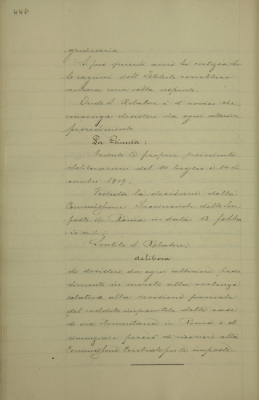 446
giudiziaria.
A fare questo avrei la certezza che
le ragioni dell'Istituto sarebbero
ancora una volta respinte.
Onde il Relatore è d'avviso che
convenga desistere da ogni ulteriore
procedimento.
La Giunta:
Veduta la propria precedente
deliberazione del 30 luglio e 10 di=
cembre 1919;
Veduta la decisione della
Commissione Provinciale delle Im=
poste di Roma in data 13 febbra
io
Sentito il Relatore;
delibera
di desistere da ogni ulteriore proce
dimento in merito alla vertenza
relativa alla revisione parziale
del reddito imponibile delle case
di via in Roma e di
rinunziare perciò di ricorrere alla
Commissione Centrale per le imposte.